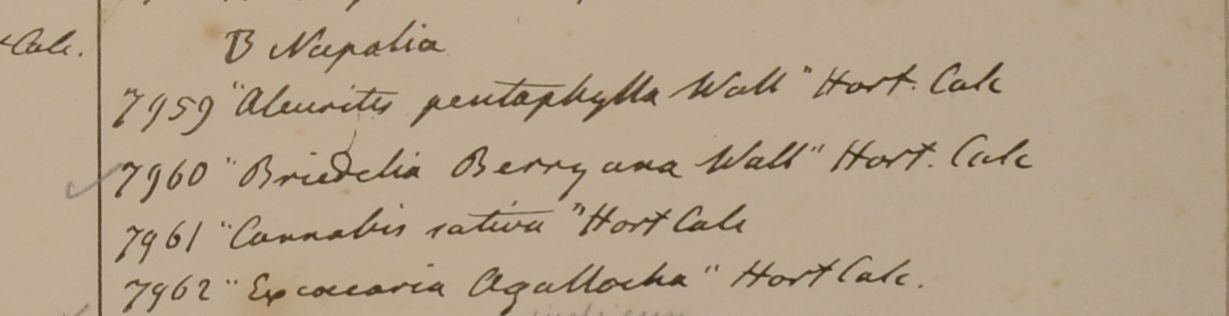 Calc.
B Nepalia
7959 "Aleurites pentaphylla Wall" Hort. Calc
7960 "Briedelia Berryana Wall" Hort. Calc
7961 "Cannabis sativa" Hort Calc
7962 "Excoecaria Agallocha" Hort Calc.